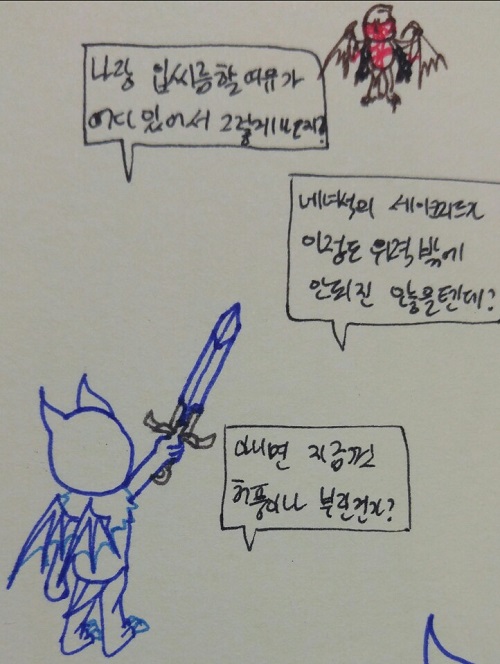 나랑 입씨름할 여유가
어디 있어서 그렇게
네녀석의
이정도 위력 밖에
안되진 않을텐데?
아니면 지금껏
허풍이나 부린건가?